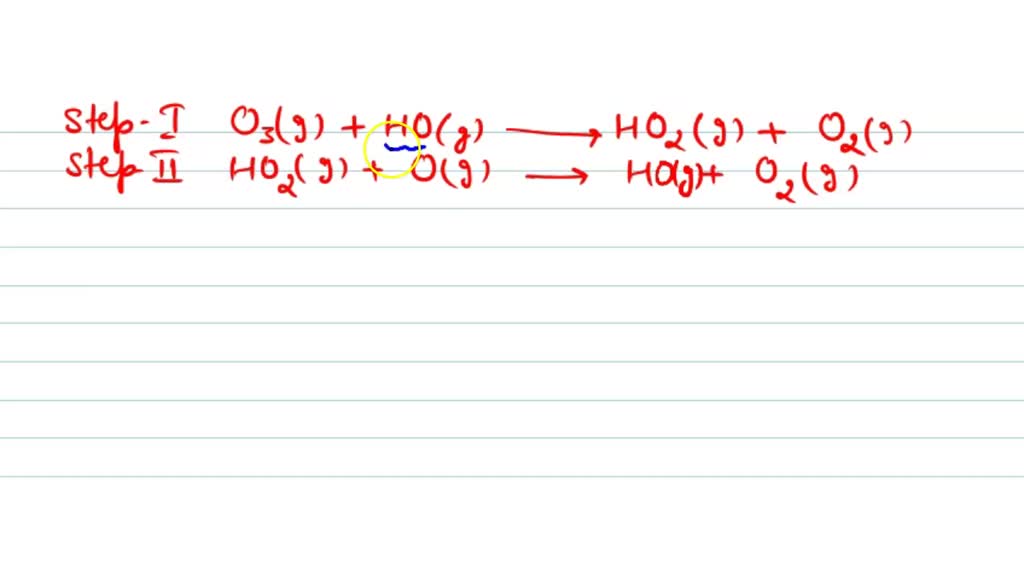 Step-I O₃(g) + HO(g) ⟶ HO₂(g) + O₂(g)
Step II HO₂(g) + O(g) ⟶ HO(g) + O₂(g)